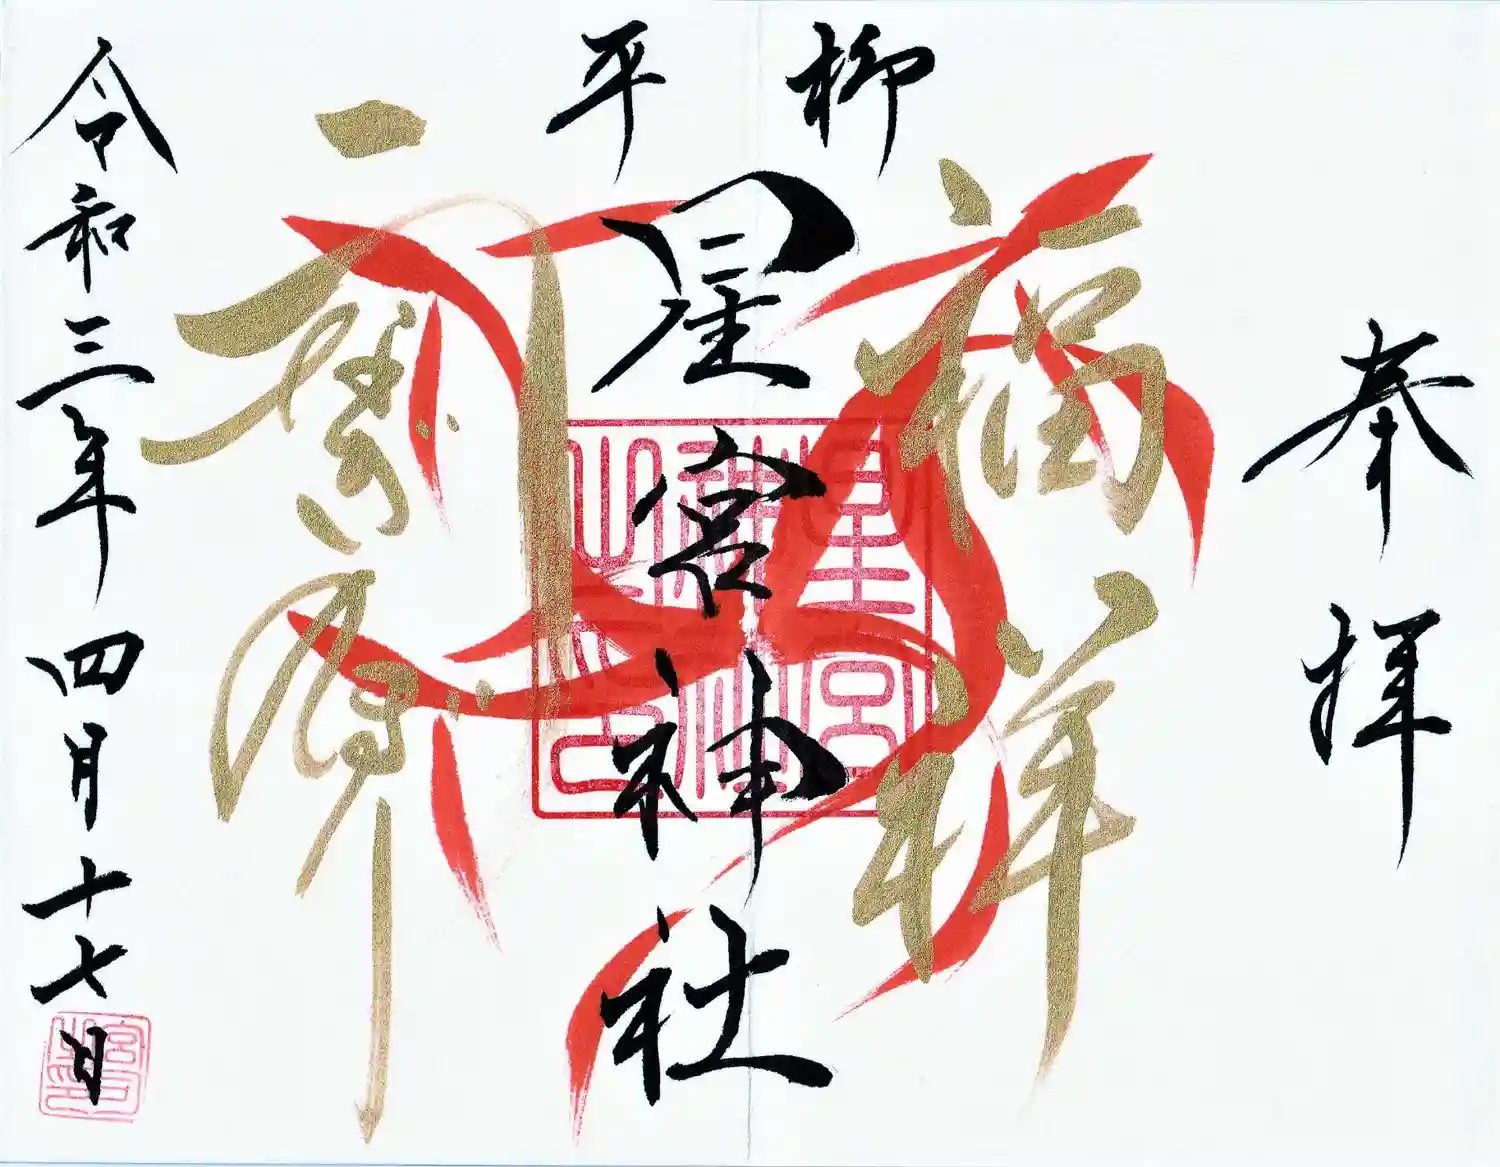 奉拝
福祥
柳平
星宮神社
齋原
令和三年四月十七日
星宮
神社
之印